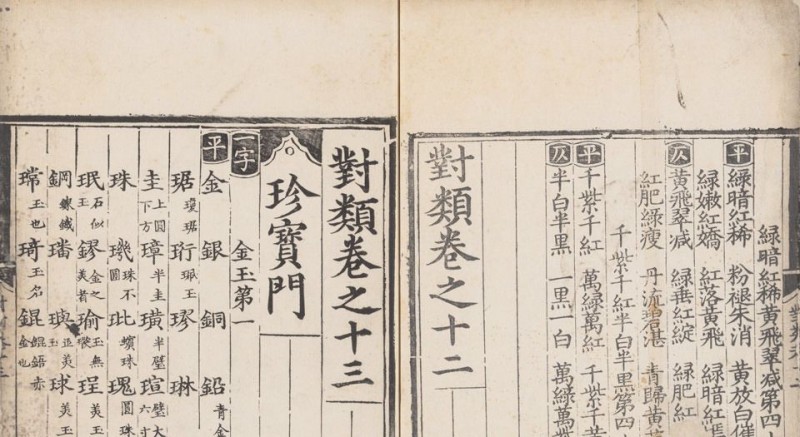 綠暗紅稀黃飛翠減第四十
平 綠暗紅稀 粉褪朱消 黃放白催
綠嫩紅嬌 紅落黃飛 綠暗紅
仄 黃飛翠減 綠垂紅綻 綠肥紅
紅肥綠瘦 丹流碧湛 青歸黃
千紫千紅半白半黑第四
平 千紫千紅 萬綠萬紅 千紫千
仄 半白半黑 一黑一白 萬綠萬
對類卷之十二
對類卷之十三
珍寶門
一字 金玉第一
平 金 銀 銅 鉛 青金
琚 瓊琚 珩 珮玉 璆 琳
圭 上圓下方 璋 半圭 璜 半璧 瑄 璧大六寸
珠 璣 珠不圓 玭 蠙珠 瑰 圓珠
珉 石似玉 鏐 金之美者 瑜 玉無 珵 美玉
鋼 鍊鐵 璠 璵 並美玉 球 美玉
璫 玉也 琦 玉名 錕 錕鋙赤金也